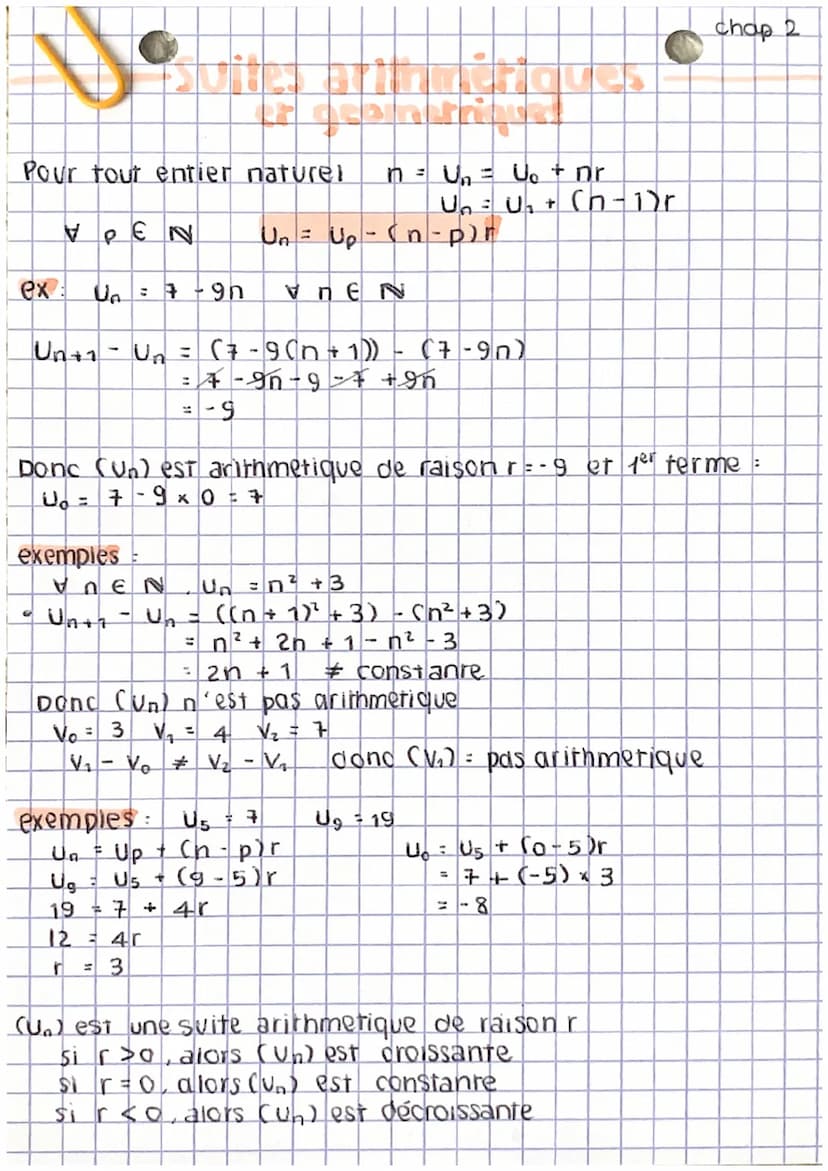 chap 2
Suites arithmétiques
et geometriques
Pour tout entier naturel n = Un = U₀ + nr
Un = U₁ + (n-1)r
∀ p ∈ ℕ Un = Up - (n-p)r
ex : Un = 7 - 9n ∀ n ∈ ℕ
Un+1 - Un = (7 - 9(n + 1)) - (7 - 9n)
= 7 - 9n - 9 - 7 + 9n
= - 9
Donc (Un) est arithmetique de raison r = - 9 et 1er terme :
U₀ = 7 - 9 × 0 = 7
exemples :
∀ n ∈ ℕ, Un = n² + 3
• Un+1 - Un = ((n + 1)² + 3) - (n² + 3)
= n² + 2n + 1 - n² - 3
= 2n + 1 ≠ constante
Donc (Un) n'est pas arithmetique
V₀ = 3 V₁ = 4 V₂ = 7
V₁ - V₀ ≠ V₂ - V₁ donc (Vn) = pas arithmetique
exemples : U₅ = 7 U₉ = 19
Un = Up + (n - p)r
U₀ = U₅ + (0 - 5)r
U₉ = U₅ + (9 - 5)r
= 7 + (-5) × 3
19 = 7 + 4r
= - 8
12 = 4r
r = 3
(Un) est une suite arithmetique de raison r
si r > 0, alors (Un) est croissante
si r = 0, alors (Un) est constante
si r < 0, alors (Un) est décroissante